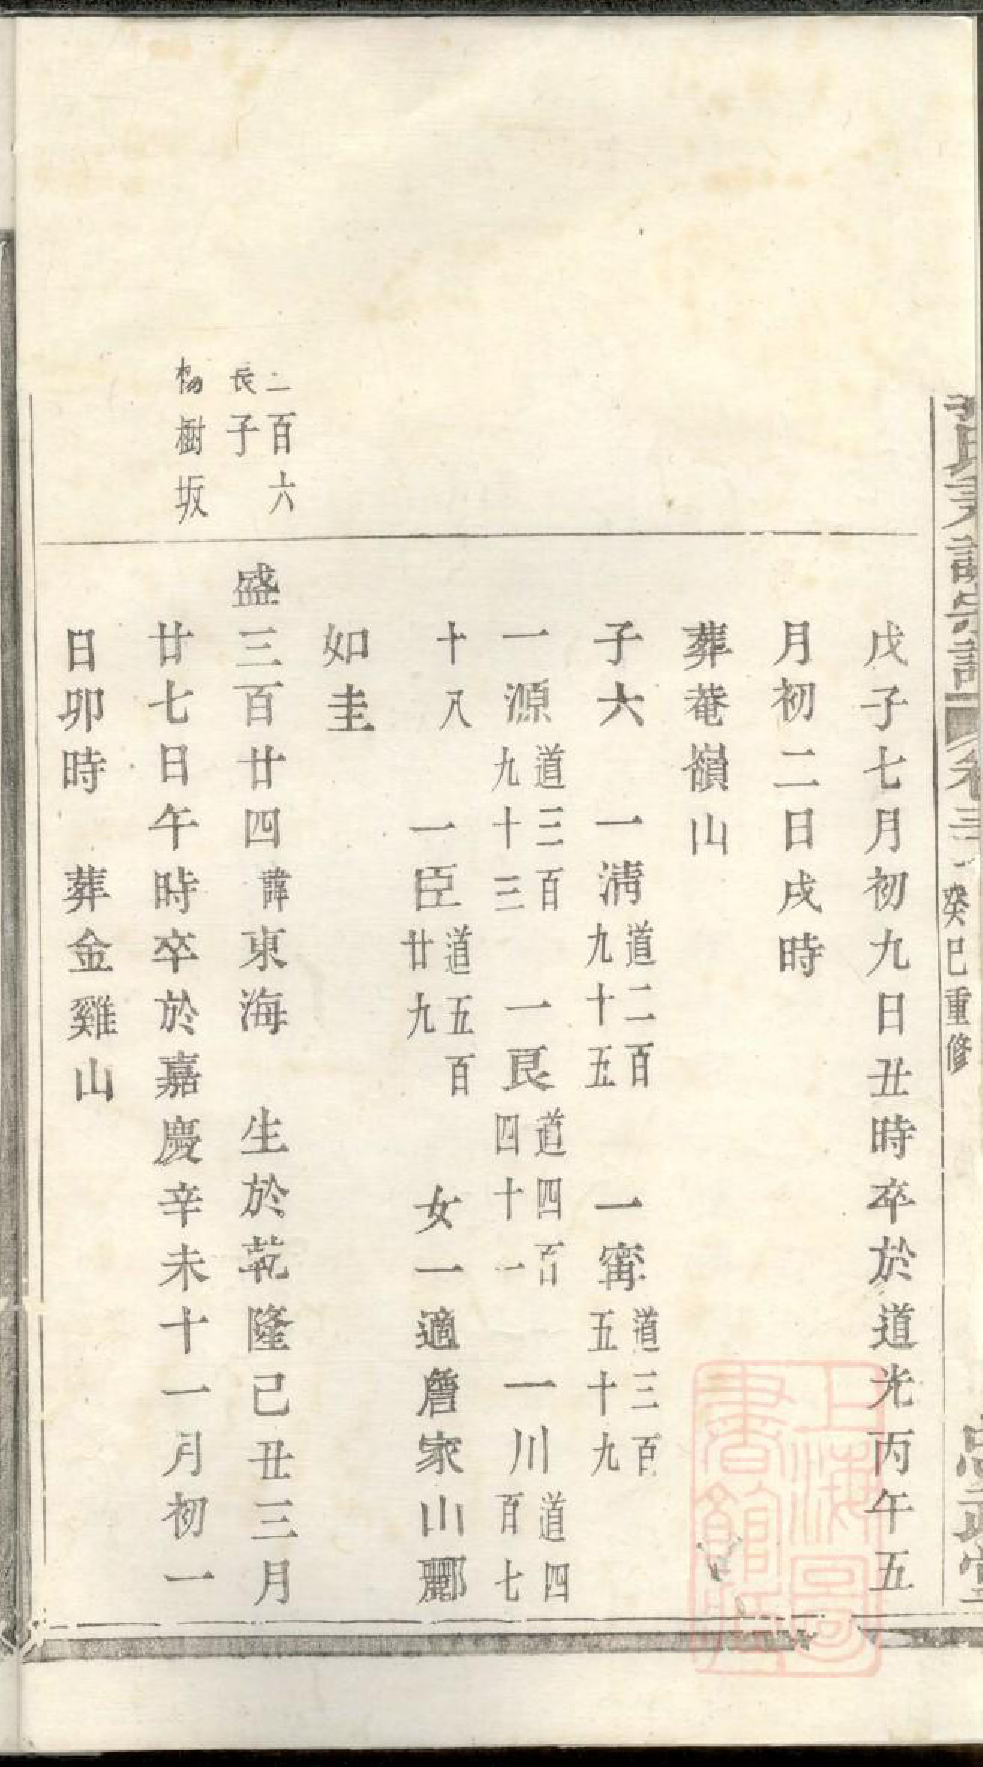 卷三
癸巳重修
戊子七月初九日丑時卒於道光丙午五
月初二日戌時
葬菴嶺山
子六 一淸道二百九十五 一甯道三百五十九
一源道三百九十三 一艮道四百四十一 一川道四百七
十八 一臣道五百廿九 女一適詹家山酈
如圭
二百六
長子
楊樹坂
盛三百廿四諱東海 生於乾隆己丑三月
廿七日午時卒於嘉慶辛未十一月初一
日卯時 葬金雞山
上海圖書館藏